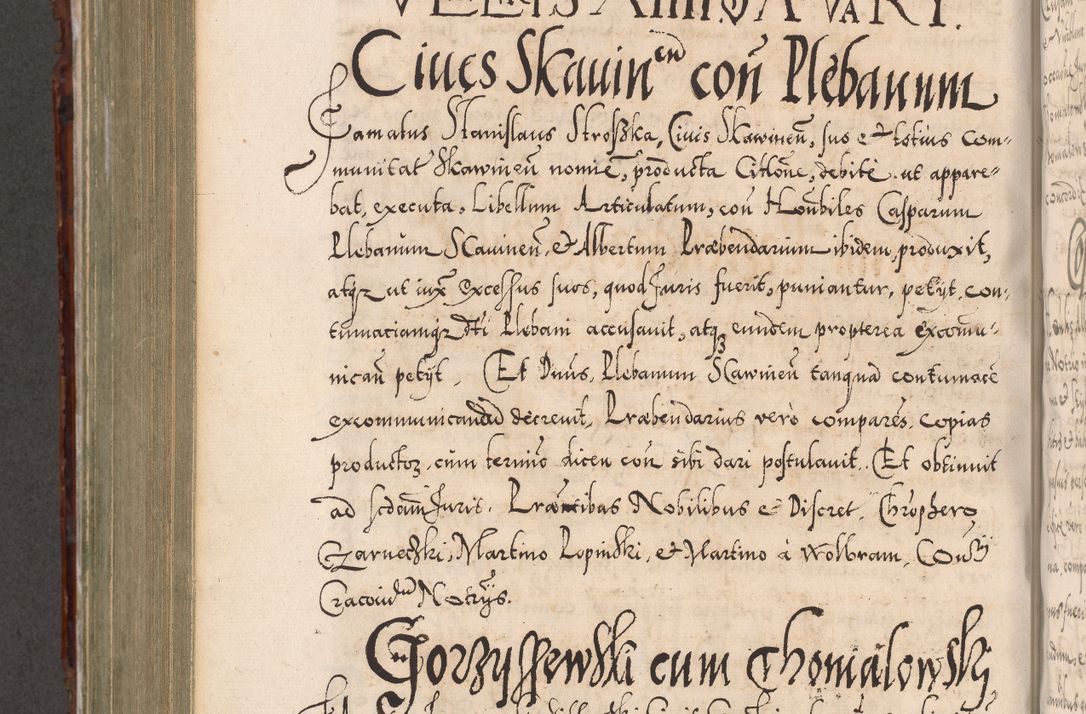 Ciues Skauinen con Plebanum
Famatus Stanislaus Stroszka, Ciuis Skawinen, suo et totius Com-
munitat Skawinen nomie, producta Citlone, debite ut appare-
bat, executa, Libellum Articulatum, con Honbiles Casparum
Plebanum Scauinen, et Albertum Præbendarium ibidem, produxit,
atq ut iux excessus suos, quod Juris fuerit, puniantur, petijt, con-
tumaciamq dti Plebani accusauit, atq eundem propterea excomu-
nican petijt. Et Dnus, Plebanum Scawinen tanquam contumace
excommunicandu decreuit, Præbendarius verò compares, copias
productoz, cum termino dicen con sibi dari postulauit. Et obtinuit
ad scdam Juris. Præntibas Nobilibus et Discret, Chrophero
Czarnecki, Martino Lopinski, et Martino à Wolbram, Consij
Cracouien Notrijs.
Gorzyssewski cum Chomalowski